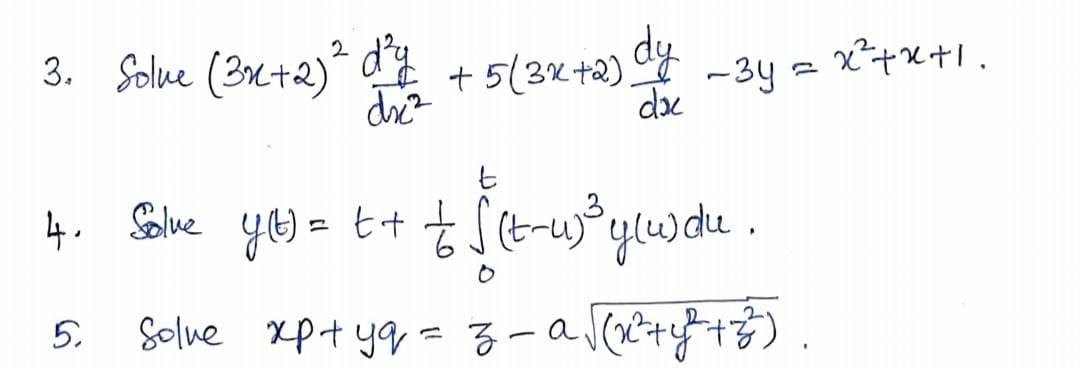 3. Solve (3x+2)² d²y/dx² + 5(3x+2) dy/dx - 3y = x²+x+1.
4. Solve y(t) = t + 1/6 ∫₀ᵗ (t-u)³ y(u) du.
5. Solve xp + yq = z - a√(x²+y²+z²).